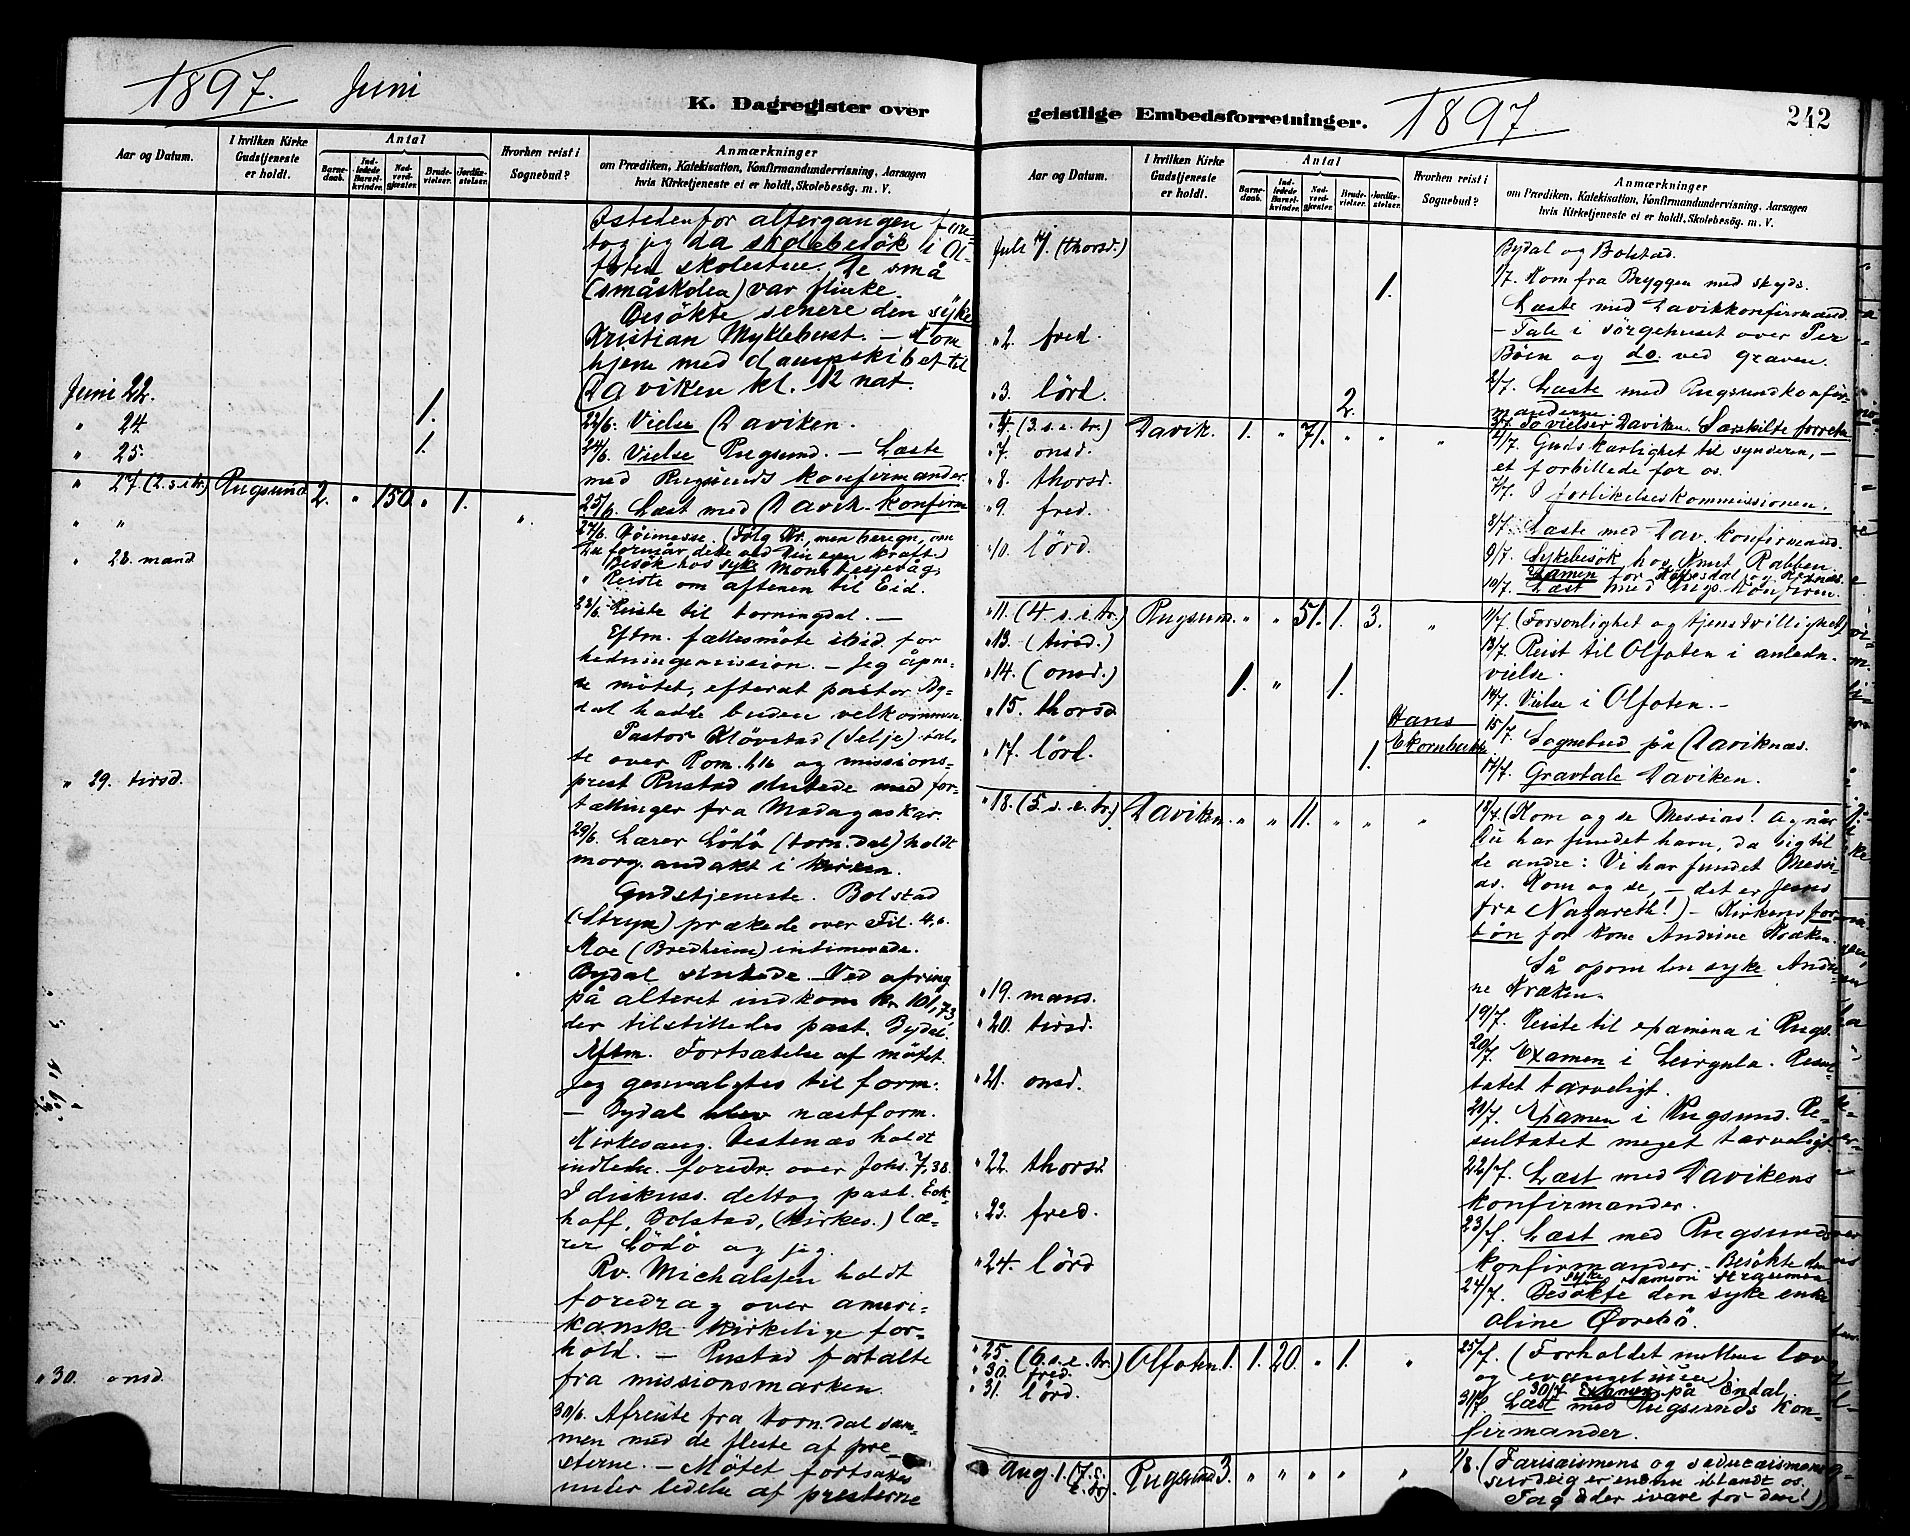 1897. Juni
K. Dagregister over
Aar og Datum.
I hvilken Kirke Gudstjeneste er holdt.
Antal
Barnedaab.
Indledede Barselkvinder.
Nadverdgjester.
Brudevielser.
Jordfæstelser.
Hvorhen reist i Sognebud?
Anmærkninger
om Prædiken, Katekisation, Konfirmandundervisning, Aarsagen
hvis Kirketjeneste ei er holdt, Skolebesög. m. V.
Istedenfor altergangen fore-
tog jeg da skolebesök i Ol-
foten skolestue. De små
(småskolen) var flinke.
Besökte senere den syke
Kristian Myklebust. – Kom
hjem med dampskibet til
Daviken kl. 12 nat.
Juni 22. 1. 22/6. Vielse Daviken.
" 24. 1. 24/6. Vielse Rugsund. – Læste
med Rugsunds konfirmander.
" 25. 25/6. Læst med Davik. konfirm
" 27 (2. s. e. tr.) Rugsund 2. " 150. " 1. "
27/6. Höimesse. (Følg Kr., men beregn, om
Du formår dette ved Din egen kraft)
" " Besök hos syke Mons
" Reiste om aftenen til Eid.
" 28. mand. 28/6. Reiste til Horningdal. –
Eftm. fællesmöte istid. for
hedningemission. – Jeg åpne-
de mötet, efterat pastor By-
dal hadde buden velkommen.
Pastor Klövstad (Selje) tal-
te over Rom. 1.16 og missions-
prest Rustad sluttede med for-
tællinger fra Madagaskar.
" 29. tirsd. 29/6. Lærer Lödö (Horn.dal) holdt
morg.andakt i kirken.
Gudstjeneste. Bolstad
(Stryn) prækede over Fil. 4,6.
Moe (Bredheim) intimerede.
Bydal sluttede. Ved ofring
på alteret indkom kr. 101,73
der tilstilledes past. Bydal.
Eftm. Fortsættelse af mötet.
Jeg genvalgtes til form.
– Bydal blev næstform.
Kirkesang. Vestenæs holdt
indlede. foredr. over Joh. 7,38.
I diskuss. deltog past. Eck-
hoff, Bolstad, (Kirkes.) læ-
rer Lödö og jeg.
Rv. Michalsen holdt
foredrag over ameri-
kanske kirkelige for-
hold. – Rustad fortalte
fra missionsmarken.
" 30. onsd. 30/6. Afreiste fra Horn.dal sam-
men med de fleste af pre-
sterne. – Mötet fortsattes
under ledelse af presterne
geistlige Embedsforretninger. 1897. 242
Aar og Datum.
I hvilken Kirke Gudstjeneste er holdt.
Antal
Barnedaab.
Indledede Barselkvinder.
Nadverdgjester.
Brudevielser.
Jordfæstelser.
Hvorhen reist i Sognebud?
Anmærkninger
om Prædiken, Katekisation, Konfirmandundervisning, Aarsagen
hvis Kirketjeneste ei er holdt, Skolebesög. m. V.
Bydal og Bolstad.
Juli 1. (thorsd.) 1. 1/7. Kom fra Bryggen med skyds.
Læste med Davikkonfirmand.
– Tale i sörgehuset over Per
Böen og do. ved graven.
" 2. fred. 2/7. Læste med Rugsundkonfir-
manderne.
" 3. lörd. 2. 3/7. To vielser Daviken. Særskilte forretn.
" 4. (3. s. e. tr.) Davik. 1. " 71. " " " 4/7. Guds kærlighet til synderen, –
et forbillede for os.
" 7. onsd. 7/7. I forlikelseskommissionen.
" 8. thorsd. 8/7. Læste med Dav. konfirmand.
" 9. fred. 9/7. Sykebesök hos Knut Rabben.
Examen for
" 10. lörd. 10/7. Læst med Rugs. Konfirm.
" 11. (4. s. e. tr.) Rugsund. " " 51. 1. 3. " 11/7. (Forsonlighet og tjenstvillighet)
" 13. (tirsd.) 13/7. Reist til Olfoten i anledn.
vielse.
" 14. (onsd.) 1. " 1. 14/7. Vielse i Olfoten. –
" 15. thorsd. Hans 15/7. Sognebud på Daviknæs.
" 17. lörd. 1. 17/7. Gravtale Daviken.
" 18. (5. s. e. tr.) Daviken " " 11. " " " 18/7. (Kom og se Messias! Og når
Du har fundet ham, da sig til
de andre: Vi har fundet Messi-
as. Kom og se, – det er Jesus
fra Nazareth!) – Kirkens for-
bön for kone Andrine Kræken.
Så opom den syke Andri-
ne Kræken.
" 19. mand. 19/7. Reiste til examina i Rugs.
" 20. tirsd. 20/7. Examen i Leirgula. Resul-
tatet tarveligt.
" 21. onsd. 21/7. Examen i Rugsund. Re-
sultatet meget tarveligt.
" 22. thorsd. 22/7. Læst med Davikens
konfirmander.
" 23. fred. 23/7. Læst med Rugsunds
konfirmander. – Besökte den
syke Samson
" 24. lörd 24/7. Besökte den syke enke
Oline Övrebö.
" 25. (6. s. e. tr.) Olfoten 1. 1. 20. " 1. " 25/7. (Forholdet mellem lov
og evangelium).
" 30. fred. 30/7. Examen på Endal.
" 31. lörd. 31/7. Læst med Rugsunds kon-
firmander.
Aug. 1. (7. s. e. tr.) Rugsund 3. " " " " " 1/8. (Farisæismens og saducæismens
surdeig er endnu iblandt os.
Tag eder ivare for den!)